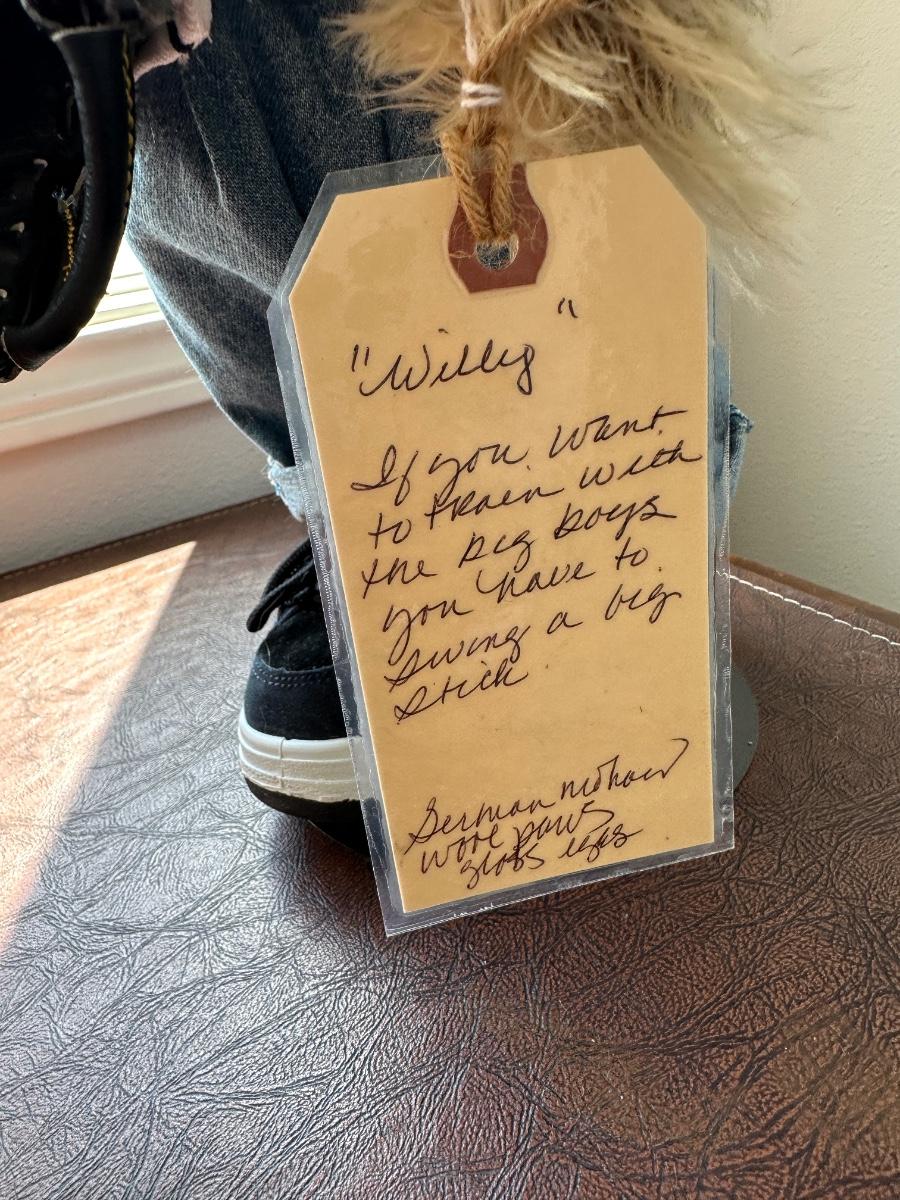 "Willy"
If you want
to train with
the big boys
you have to
swing a big
stick.
German mohair
wool paws
glass eyes